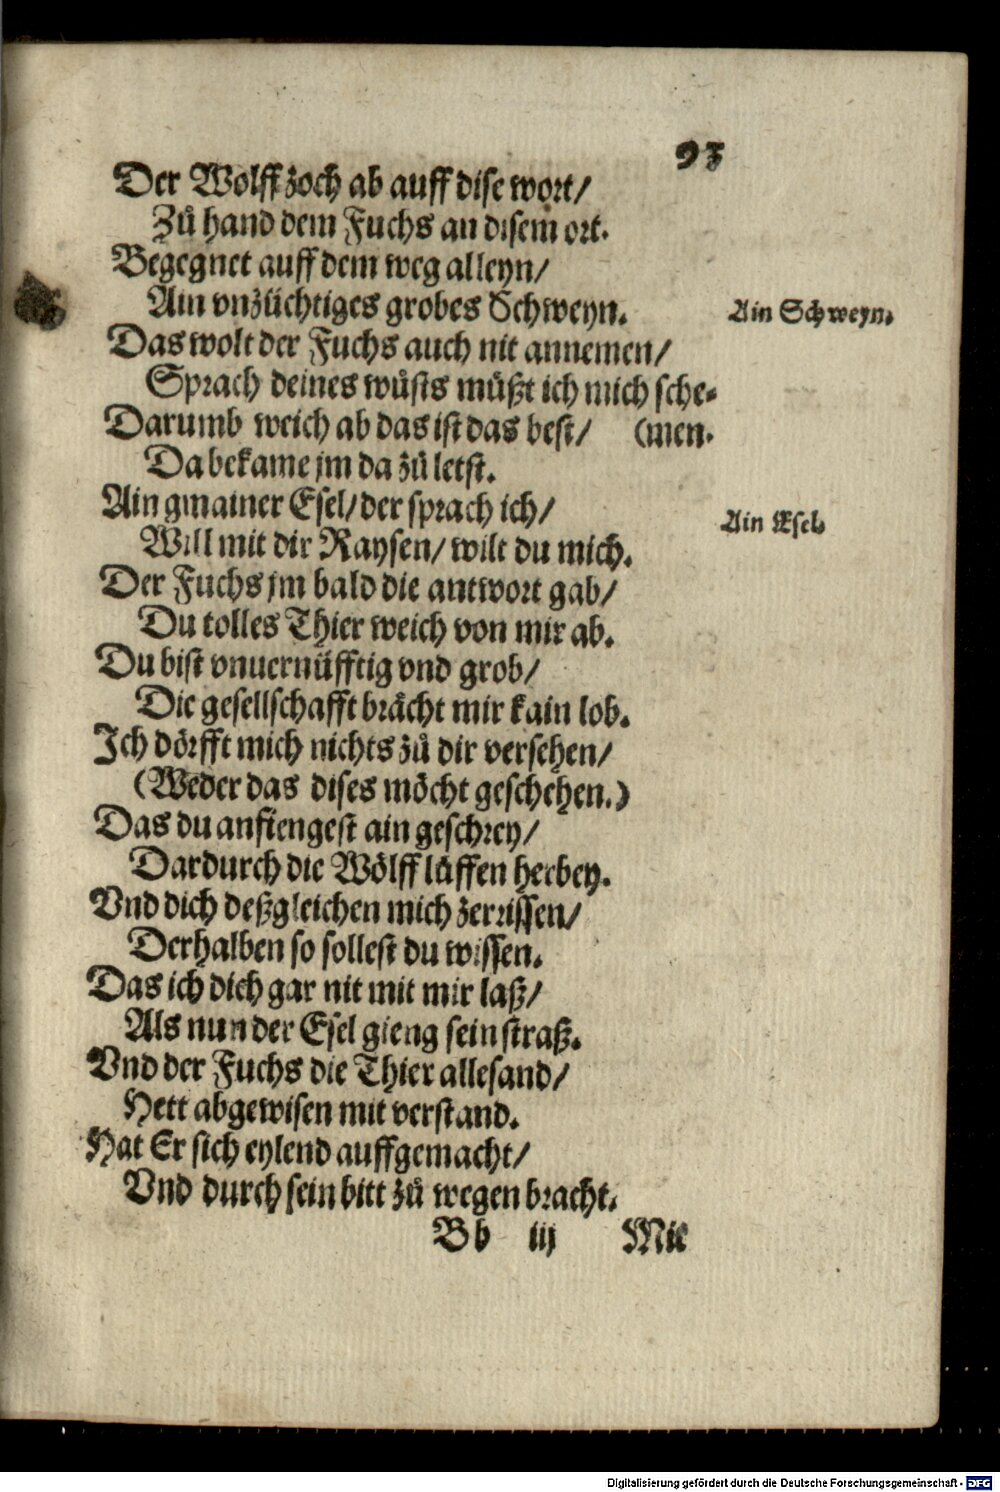 93
Der Wolff zoch ab auff dise wort/
Zů hand dem Fuchs an disem ort.
Begegnet auff dem weg alleyn/
Ain vnzüchtiges grobes Schweyn.
Ain Schweyn.
Das wolt der Fuchs auch nit annemen/
Sprach deines wůsts můßt ich mich sche-
Darumb weich ab das ist das best/ (men.
Da bekame jm da zů letst.
Ain gmainer Esel/ der sprach ich/
Ain Esel.
Will mit dir Raysen/ wilt du mich.
Der Fuchs jm bald die antwort gab/
Du tolles Thier weich von mir ab.
Du bist vnuernüfftig vnd grob/
Die gesellschafft brächt mir kain lob.
Ich dörfft mich nichts zů dir versehen/
(Weder das dises möcht geschehen.)
Das du anfiengest ain geschrey/
Dardurch die Wölff lüffen herbey.
Vnd dich deßgleichen mich zerrissen/
Derhalben so sollest du wissen.
Das ich dich gar nit mit mir laß/
Als nun der Esel gieng sein straß.
Vnd der Fuchs die Thier allesand/
Hett abgewisen mit verstand.
Hat Er sich eylend auffgemacht/
Vnd durch sein bitt zů wegen bracht.
Bb iij Mit
Digitalisierung gefördert durch die Deutsche Forschungsgemeinschaft - DFG